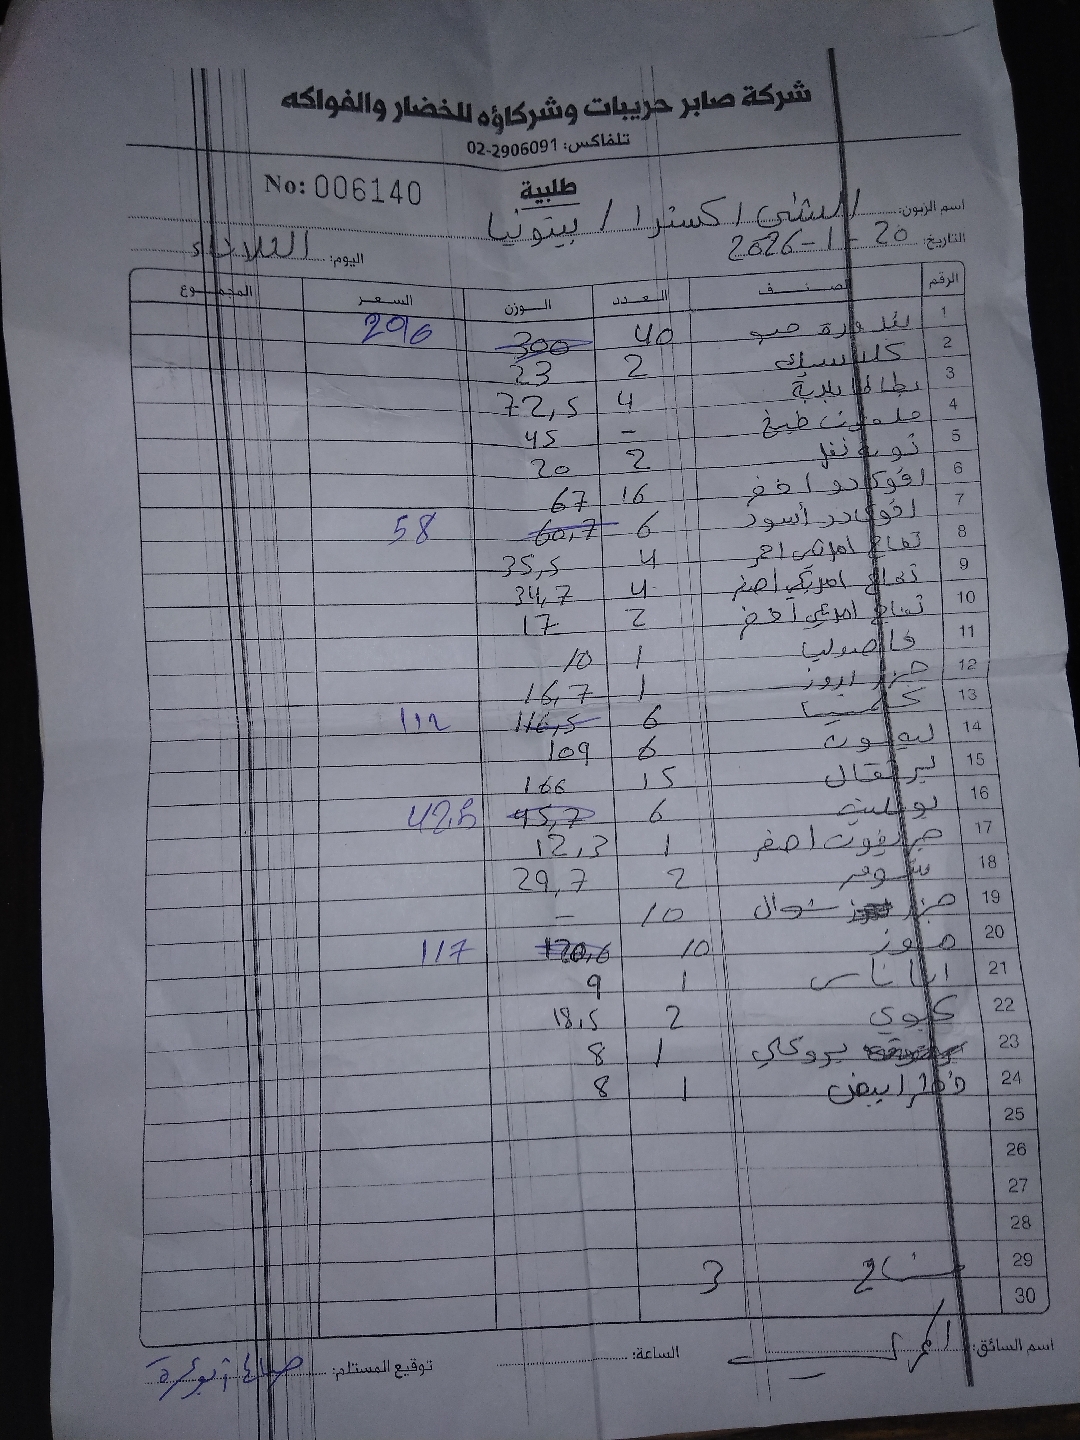 شركة صابر حريبات وشركاؤه للخضار والفواكه
تلفاكس: 02-2906091
No: 006140
طلبية
اسم الزبون: الشني اكسترا / بيتونيا
التاريخ: 20-1-2026 اليوم: الثلاثاء
الرقم الصنف العدد الوزن السعر المجموع
1 بندورة 40 300 296
2 كلاسيك 2 23
3 بطاطا 4 72,5
4 - 45
5 2 20
6 افوكادو اخضر 16 67
7 افوكادو أسود 6 60,7 58
8 تفاح امريكي احمر 4 35,5
9 تفاح امريكي اصفر 4 34,7
10 تفاح امريكي أخضر 2 17
11 فاصوليا 1 10
12 جزر 1 16,7
13 6 116,5 112
14 ليمون 6 109
15 برتقال 15 166
16 بوملية 6 45,7 42,5
17 جريفوت اصفر 1 12,3
18 شومر 2 29,7
19 جزر شوال 10 -
20 موز 10 120,6 117
21 اناناس 1 9
22 كيوي 2 18,5
23 بروكلي 1 8
24 فطر ابيض 1 8
25
26
27
28
29 3
30
اسم السائق: الساعة: توقيع المستلم: